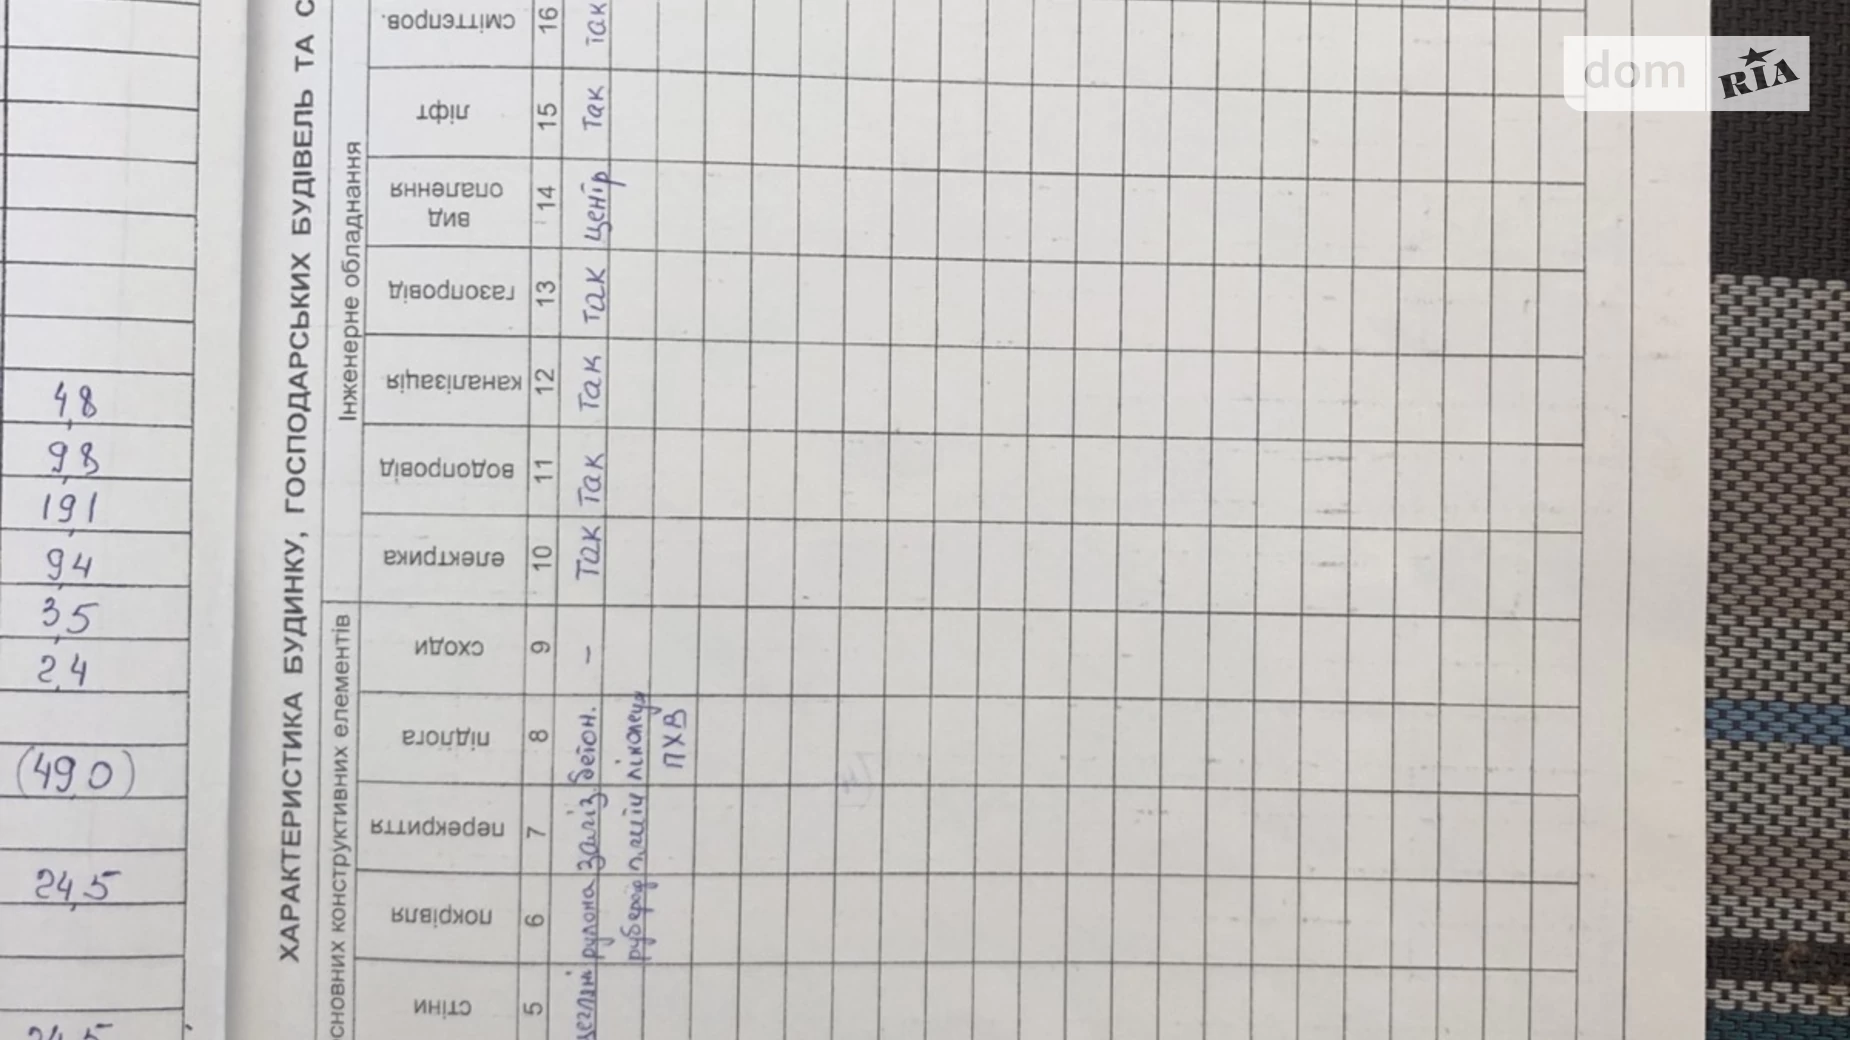 4,8
9,8
19,1
9,4
3,5
2,4
(49,0)
24,5
24,5
ХАРАКТЕРИСТИКА БУДИНКУ, ГОСПОДАРСЬКИХ БУДІВЕЛЬ ТА С
сновних конструктивних елементів
Інженерне обладнання
стіни
покрівля
перекриття
підлога
сходи
електрика
водопровід
каналізація
газопровід
вид
опалення
ліфт
сміттєпров.
5 6 7 8 9 10 11 12 13 14 15 16
цегляні рулона заліз.бетон. – Так Так Так Так центр Так Так
рубероїд лінолеум
ПХВ
dom RIA